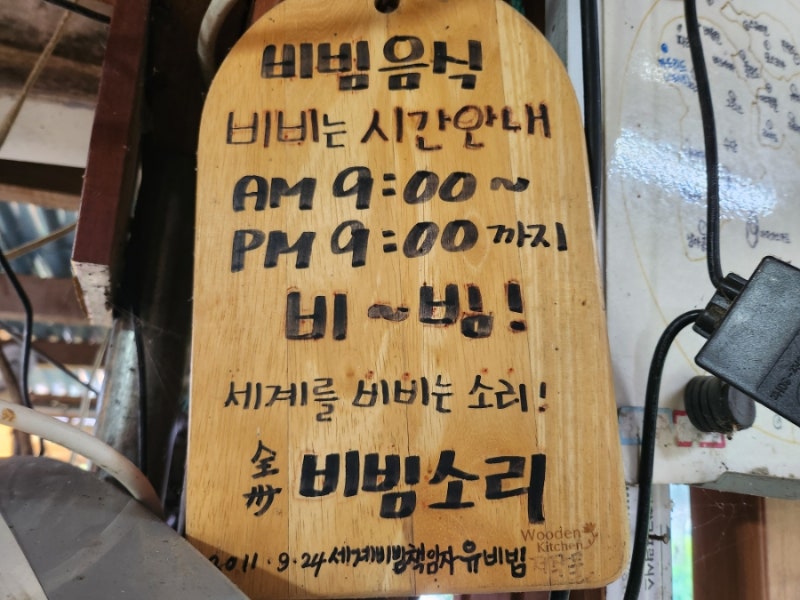 비빔음식
비비는 시간안내
AM 9:00~
PM 9:00까지
비~빔!
세계를 비비는 소리!
全州 비빔소리
Wooden
Kitchen
2011.9.24 세계비빔책임자 유비빔